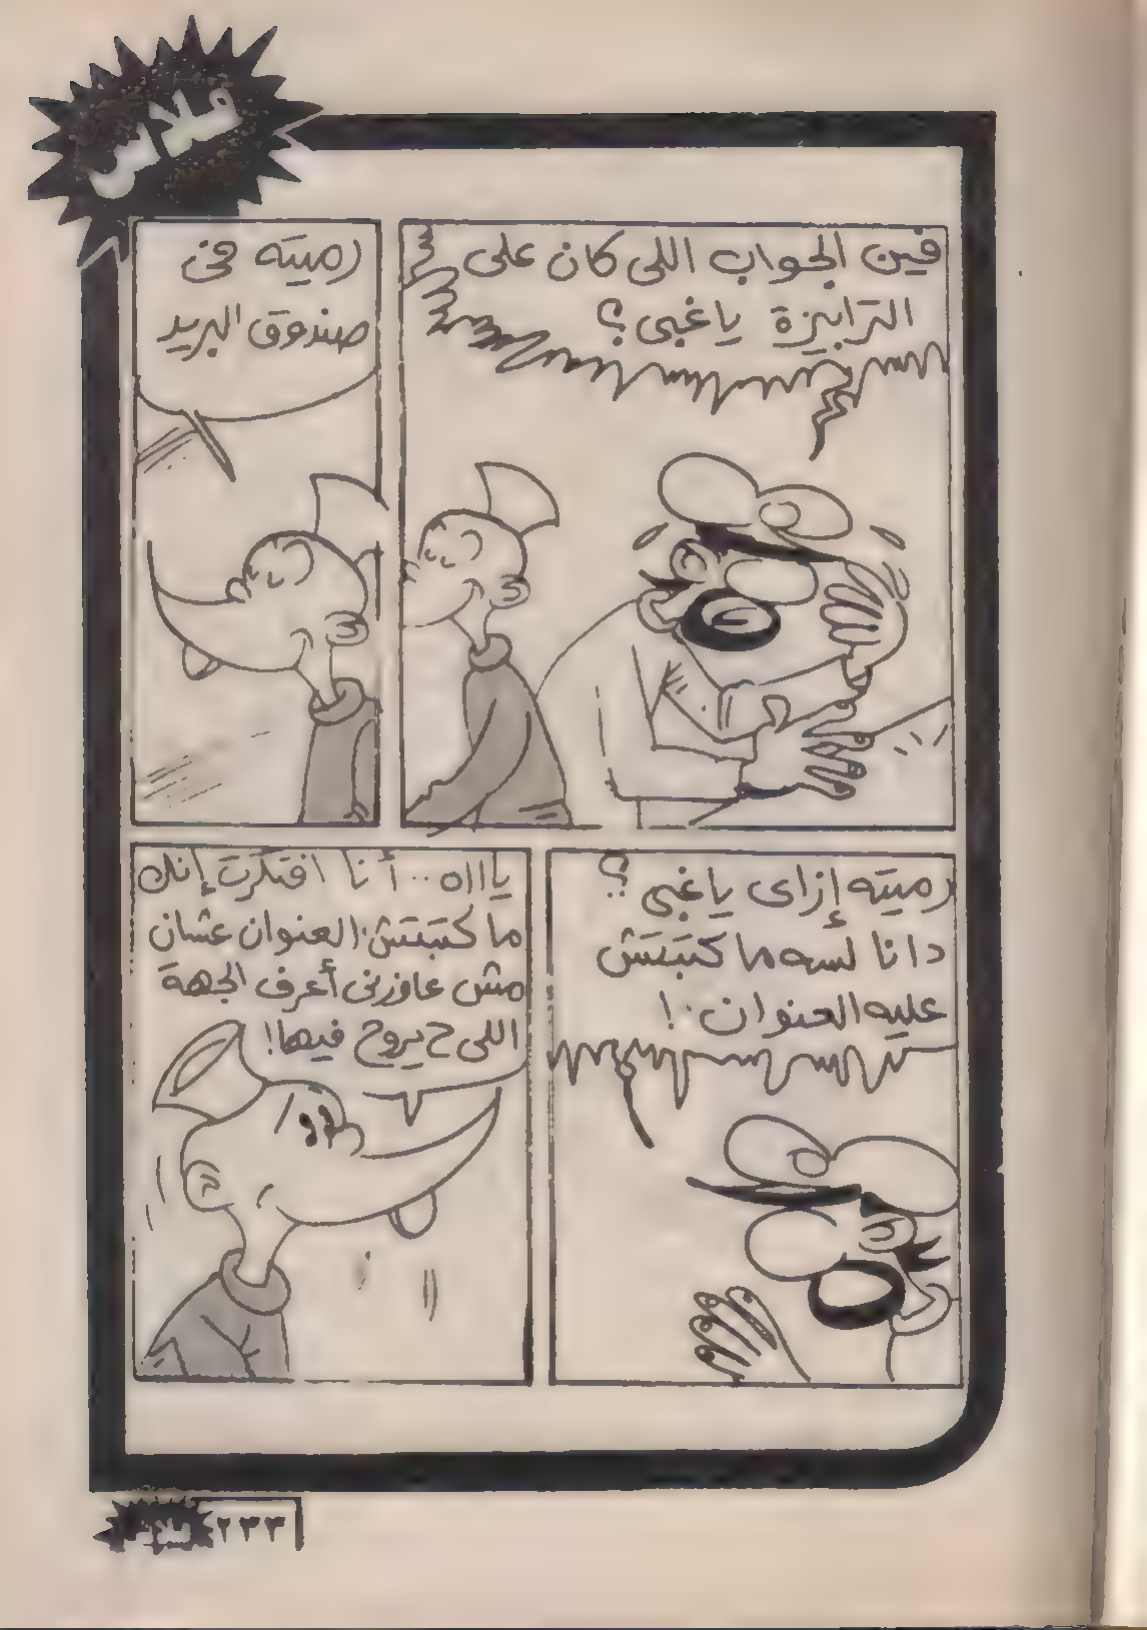 فلاش
فين الجواب اللى كان على
الترابيزة ياغبى؟
رميته فى
صندوق البريد
رميته إزاى ياغبى؟!
دانا لسه ما كَتَبتَش
عليه العنوان.!
يااااه.. أنا افتكَرت إنك
ما كتَبتش العنوان عشان
مش عاوزنى أعرف الجهة
اللى ح يروح فيها!
٢٣٣
فلاش